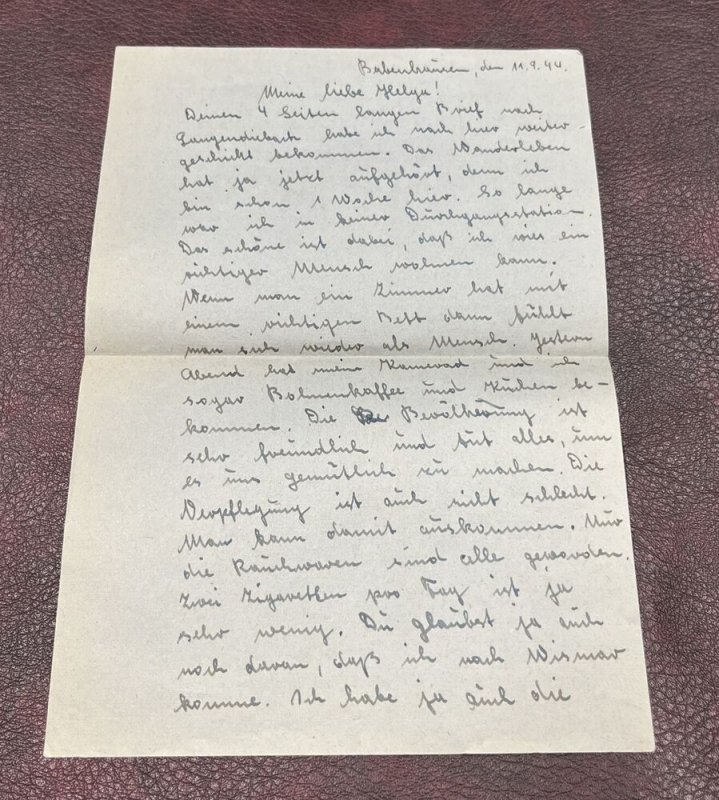 Babenhausen, den 11.9.44.
Meine liebe Helga!
Deinen 4 Seiten langen Brief nach
Langendiebach habe ich nach hier weiter
geschickt bekommen. Das Wanderleben
hat ja jetzt aufgehört, denn ich
bin schon 1 Woche hier. So lange
war ich in keiner Durchgangsstation.
Das schöne ist dabei, daß ich wie ein
richtiger Mensch wohnen kann.
Wenn man ein Zimmer hat mit
einem richtigen Bett dann fühlt
man sich wieder als Mensch. Gestern
Abend hat mein Kamerad und ich
sogar Bohnenkaffee und Kuchen be-
kommen. Die Bevölkerung ist
sehr freundlich und tut alles, um
es uns gemütlich zu machen. Die
Verpflegung ist auch nicht schlecht.
Man kann damit auskommen. Nur
die Rauchwaren sind alle geworden.
Zwei Zigaretten pro Tag ist ja
sehr wenig. Du glaubst ja auch
noch daran, daß ich nach Wismar
komme. Ich habe ja auch die